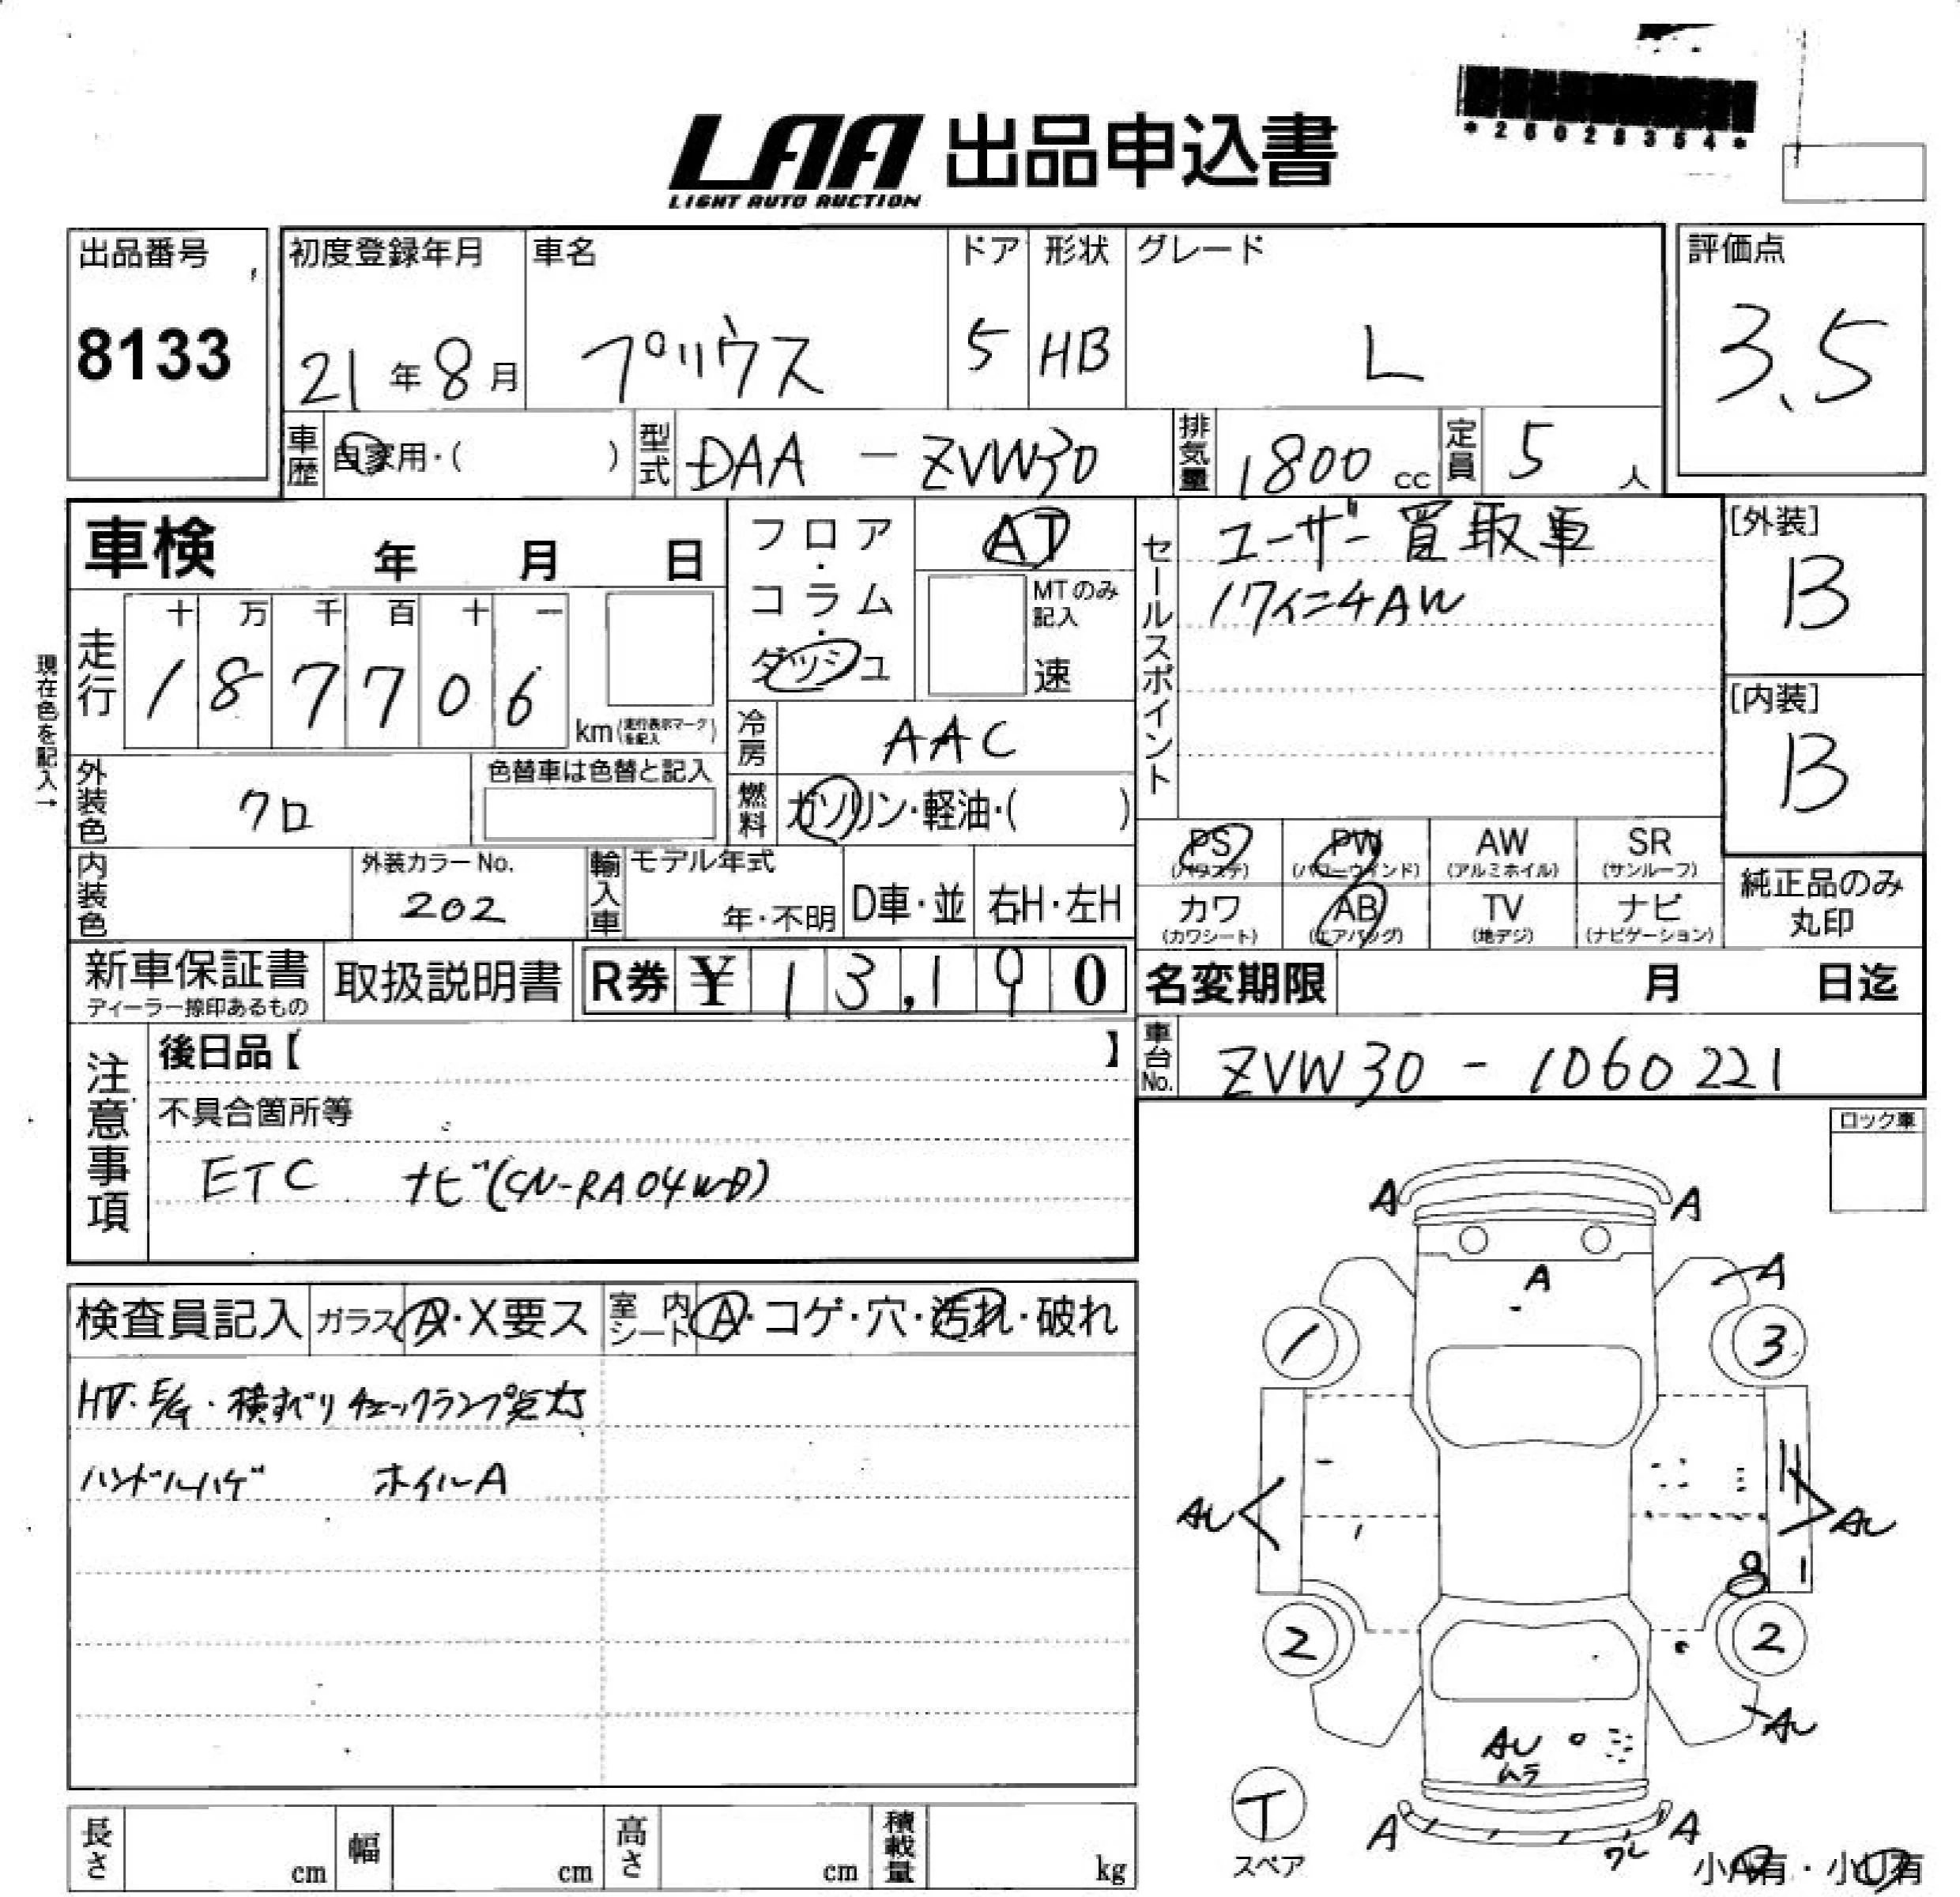 LAA 出品申込書
LIGHT AUTO AUCTION
*26028354*
出品番号
8133
初度登録年月
21年8月
車名
プリウス
ドア
5
形状
HB
グレード
L
評価点
3.5
車歴
自家用・( )
型式
DAA - ZVW30
排気量
1800 cc
定員
5 人
車検 年 月 日
フロア・コラム・ダッシュ
AT
MTのみ記入
速
セールスポイント
ユーザー買取車
17インチAW
[外装]
B
[内装]
B
現在色を記入→
走行
十 万 千 百 十 一
1 8 7 7 0 6
km(走行表示マークを記入)
冷房
AAC
外装色
クロ
色替車は色替と記入
燃料
ガソリン・軽油・( )
内装色
外装カラーNo.
202
輸入車
モデル年式
年・不明
D車・並
右H・左H
PS
(パワステ)
PW
(パワーウインド)
AW
(アルミホイル)
SR
(サンルーフ)
カワ
(カワシート)
AB
(エアバッグ)
TV
(地デジ)
ナビ
(ナビゲーション)
純正品のみ
丸印
新車保証書
ディーラー捺印あるもの
取扱説明書
R券 ¥ 13,190
名変期限 月 日迄
車台No.
ZVW30 - 1060221
注意事項
後日品【 】
不具合箇所等
ETC ナビ(CN-RA04WD)
ロック車
検査員記入
ガラス A・X要ス
室内シート A・コゲ・穴・汚れ・破れ
HV・E/G・横すべりチェックランプ点灯
ハンドルハゲ ホイルA
A A
A
A
1 3
AU AU
2 2
AU
AU
ムラ
T
スペア
A A
ワレ
小A有・小U有
長さ cm
幅 cm
高さ cm
積載量 kg